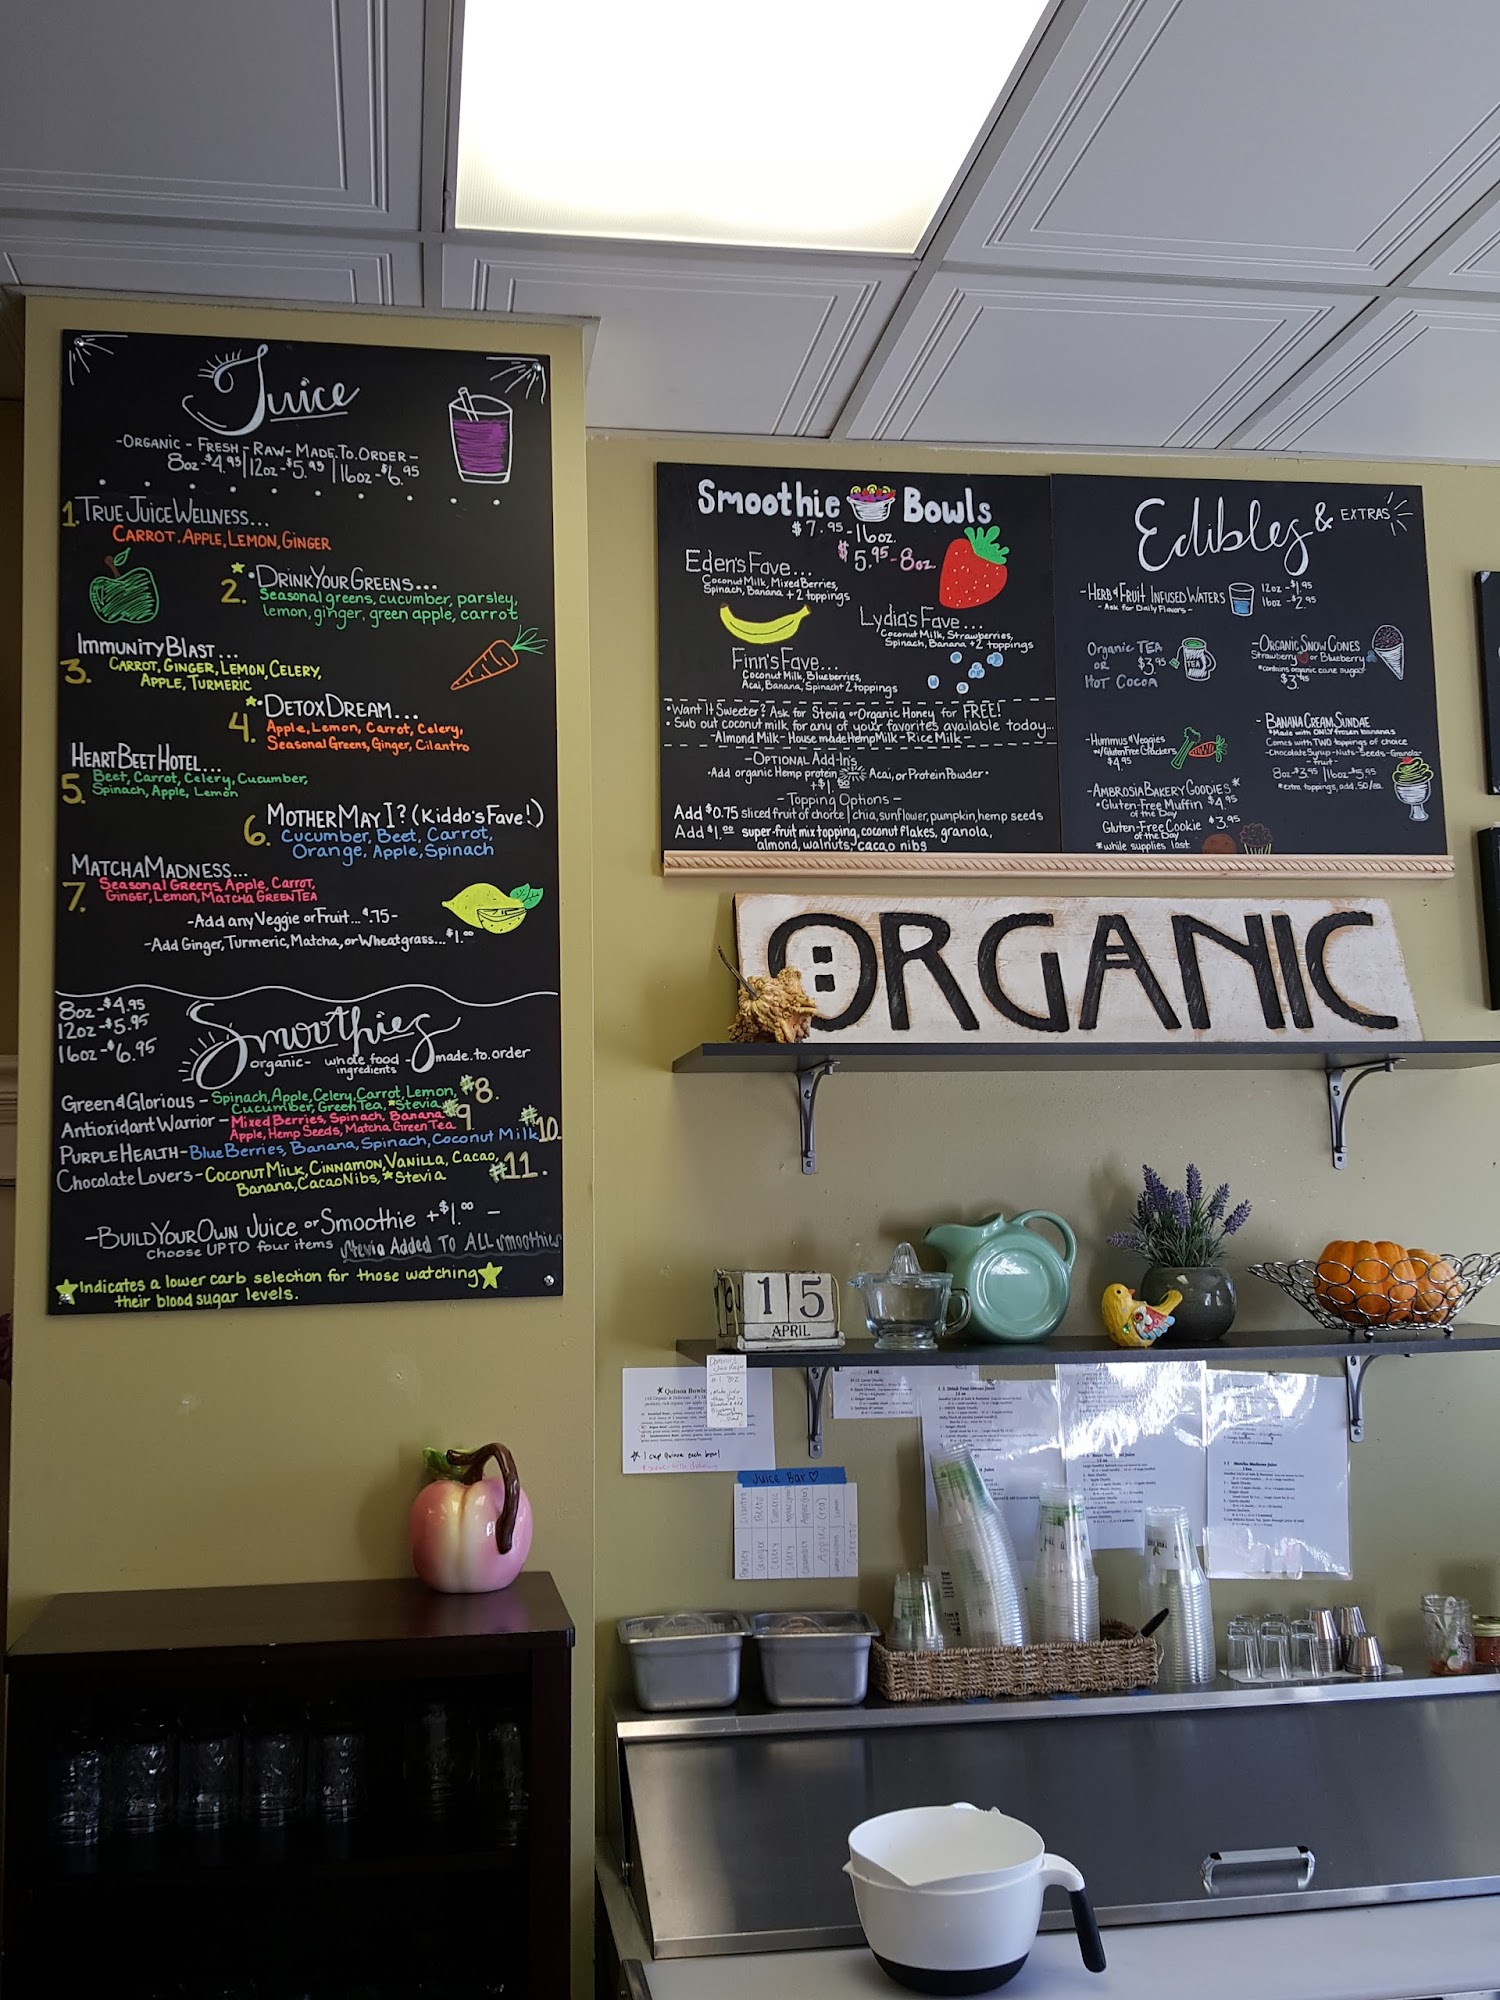 Juice
-ORGANIC - FRESH - RAW - MADE.TO.ORDER-
8oz-$4.95|12oz-$5.95|16oz-$6.95
1. TRUE JUICE WELLNESS...
CARROT. APPLE, LEMON, GINGER
2. DRINK YOUR GREENS...
Seasonal greens, cucumber, parsley,
lemon, ginger, green apple, carrot
IMMUNITY BLAST...
3. CARROT, GINGER, LEMON, CELERY,
APPLE, TURMERIC
4. DETOX DREAM...
Apple, Lemon, Carrot, Celery,
Seasonal Greens, Ginger, Cilantro
HEART BEET HOTEL...
5. Beet, Carrot, Celery, Cucumber,
Spinach, Apple, Lemon
6. MOTHER MAY I? (Kiddo's Fave!)
Cucumber, Beet, Carrot,
Orange, Apple, Spinach
MATCHA MADNESS...
7. Seasonal Greens, Apple, Carrot,
Ginger, Lemon, MATCHA GREEN TEA
-Add any Veggie or Fruit...$.75-
-Add Ginger, Turmeric, Matcha, or Wheatgrass...$1.00
8oz-$4.95
12oz-$5.95
16oz-$6.95
Smoothies
organic- whole food ingredients -made.to.order
Green & Glorious - Spinach, Apple, Celery, Carrot, Lemon, #8.
Cucumber, Green Tea, *Stevia
Antioxidant Warrior - Mixed Berries, Spinach, Banana #9
Apple, Hemp Seeds, Matcha Green Tea
PURPLE HEALTH - Blue Berries, Banana, Spinach, Coconut Milk #10.
Chocolate Lovers - COCONUT MILK, CINNAMON, VANILLA, CACAO, #11.
BANANA, CACAO NIBS, *Stevia
-BUILD YOUR OWN JUICE or Smoothie +$1.00 -
choose UP TO four items Stevia Added TO ALL smoothies
Indicates a lower carb selection for those watching
their blood sugar levels.
Smoothie Bowls
$7.95-16oz.
$5.95-8oz.
Eden's Fave...
Coconut Milk, Mixed Berries,
Spinach, Banana + 2 toppings
Lydia's Fave...
Coconut Milk, Strawberries,
Spinach, Banana +2 toppings
Finn's Fave...
Coconut Milk, Blueberries,
Acai, Banana, Spinach + 2 toppings
•Want It Sweeter? Ask for Stevia or Organic Honey for FREE!
•Sub out coconut milk for any of your favorites available today...
-Almond Milk-House made Hemp Milk-Rice Milk-
-OPTIONAL Add-In's-
•Add organic Hemp protein, Acai, or Protein Powder•
+$1.00
-Topping Options-
Add $0.75 sliced fruit of choice | chia, sunflower, pumpkin, hemp seeds
Add $1.00 super-fruit mix topping, coconut flakes, granola,
almond, walnuts, cacao nibs
Edibles & EXTRAS
-HERB & FRUIT INFUSED WATERS
-Ask for Daily Flavors-
12oz-$1.95
16oz-$2.95
Organic TEA
OR $3.95
HOT COCOA
TEA
-ORGANIC SNOW CONES
Strawberry or Blueberry
*contains organic cane sugar
$3.95
-Hummus & Veggies
w/Gluten Free Crackers
$4.95
-BANANA CREAM SUNDAE
*Made with ONLY frozen bananas
Comes with TWO toppings of choice
-Chocolate Syrup-Nuts-Seeds-Granola-
-Fruit-
8oz-$3.95|16oz-$5.95
*extra toppings, add .50/ea.
-AMBROSIA BAKERY GOODIES*
•Gluten-Free Muffin $4.95
of the Day
Gluten-Free Cookie $3.95
of the Day
*while supplies last
ORGANIC
15
APRIL
Quinoa Bowls
1 cup quinoa each bowl
Juice Bar